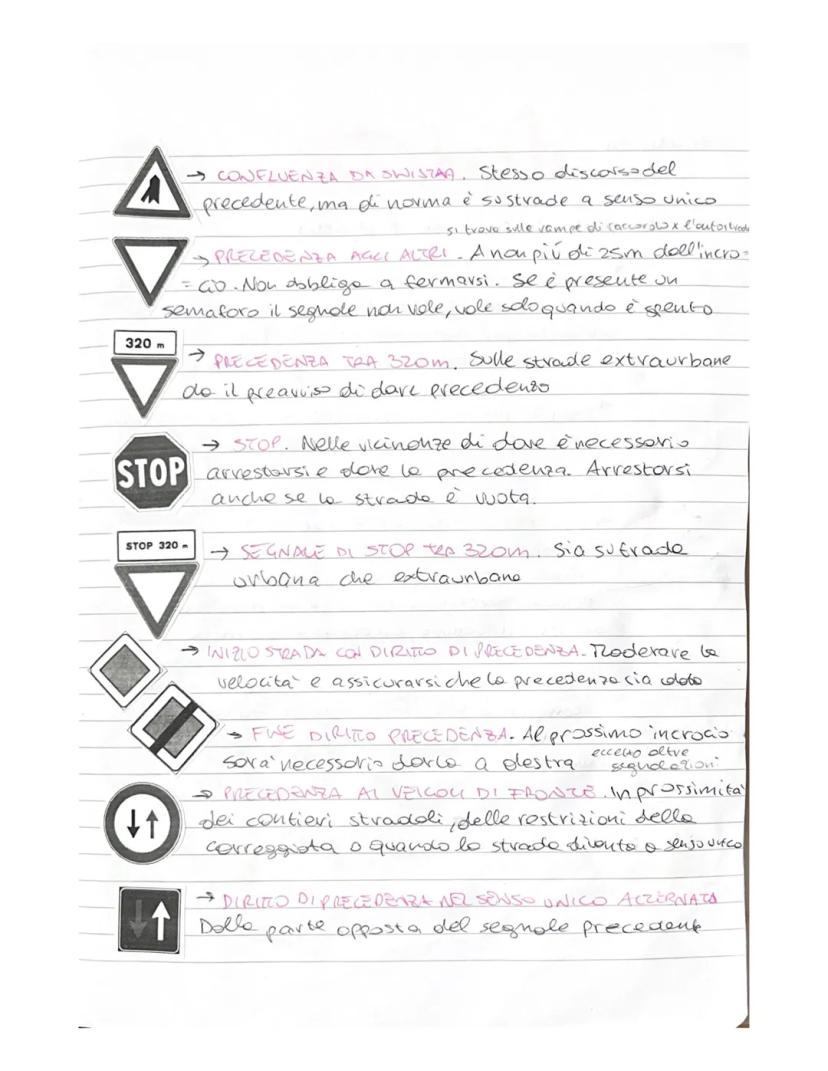 → CONFLUENZA DA SINISTRA. Stesso discorso del
precedente, ma di norma è su strade a senso unico
si trova sulle rampe di raccordo x l'autostrada
→ PRECEDENZA AGLI ALTRI. A non più di 25m dall'incro=
=cio. Non obbliga a fermarsi. Se è presente un
semaforo il segnale non vale, vale solo quando è spento
320 m
→ PRECEDENZA TRA 320m. Sulle strade extraurbane
da il preavviso di dare precedenza
STOP
→ STOP. Nelle vicinanze di dove è necessario
arrestarsi e dare la precedenza. Arrestarsi
anche se la strada è vuota.
STOP 320 m
→ SEGNALE DI STOP TRA 320m. Sia su trade
urbana che extraurbana
→ INIZIO STRADA CON DIRITTO DI PRECEDENZA. Moderare la
velocità e assicurarsi che la precedenza sia data
→ FINE DIRITTO PRECEDENZA. Al prossimo incrocio
sarà necessario darla a destra eccetto altre
segnalazioni
→ PRECEDENZA AI VEICOLI DI FRONTE. In prossimità
dei cantieri stradali, delle restrizioni della
carreggiata o quando la strada diventa a senso unico
→ DIRITTO DI PRECEDENZA NEL SENSO UNICO ALTERNATO
Dalla parte opposta del segnale precedente